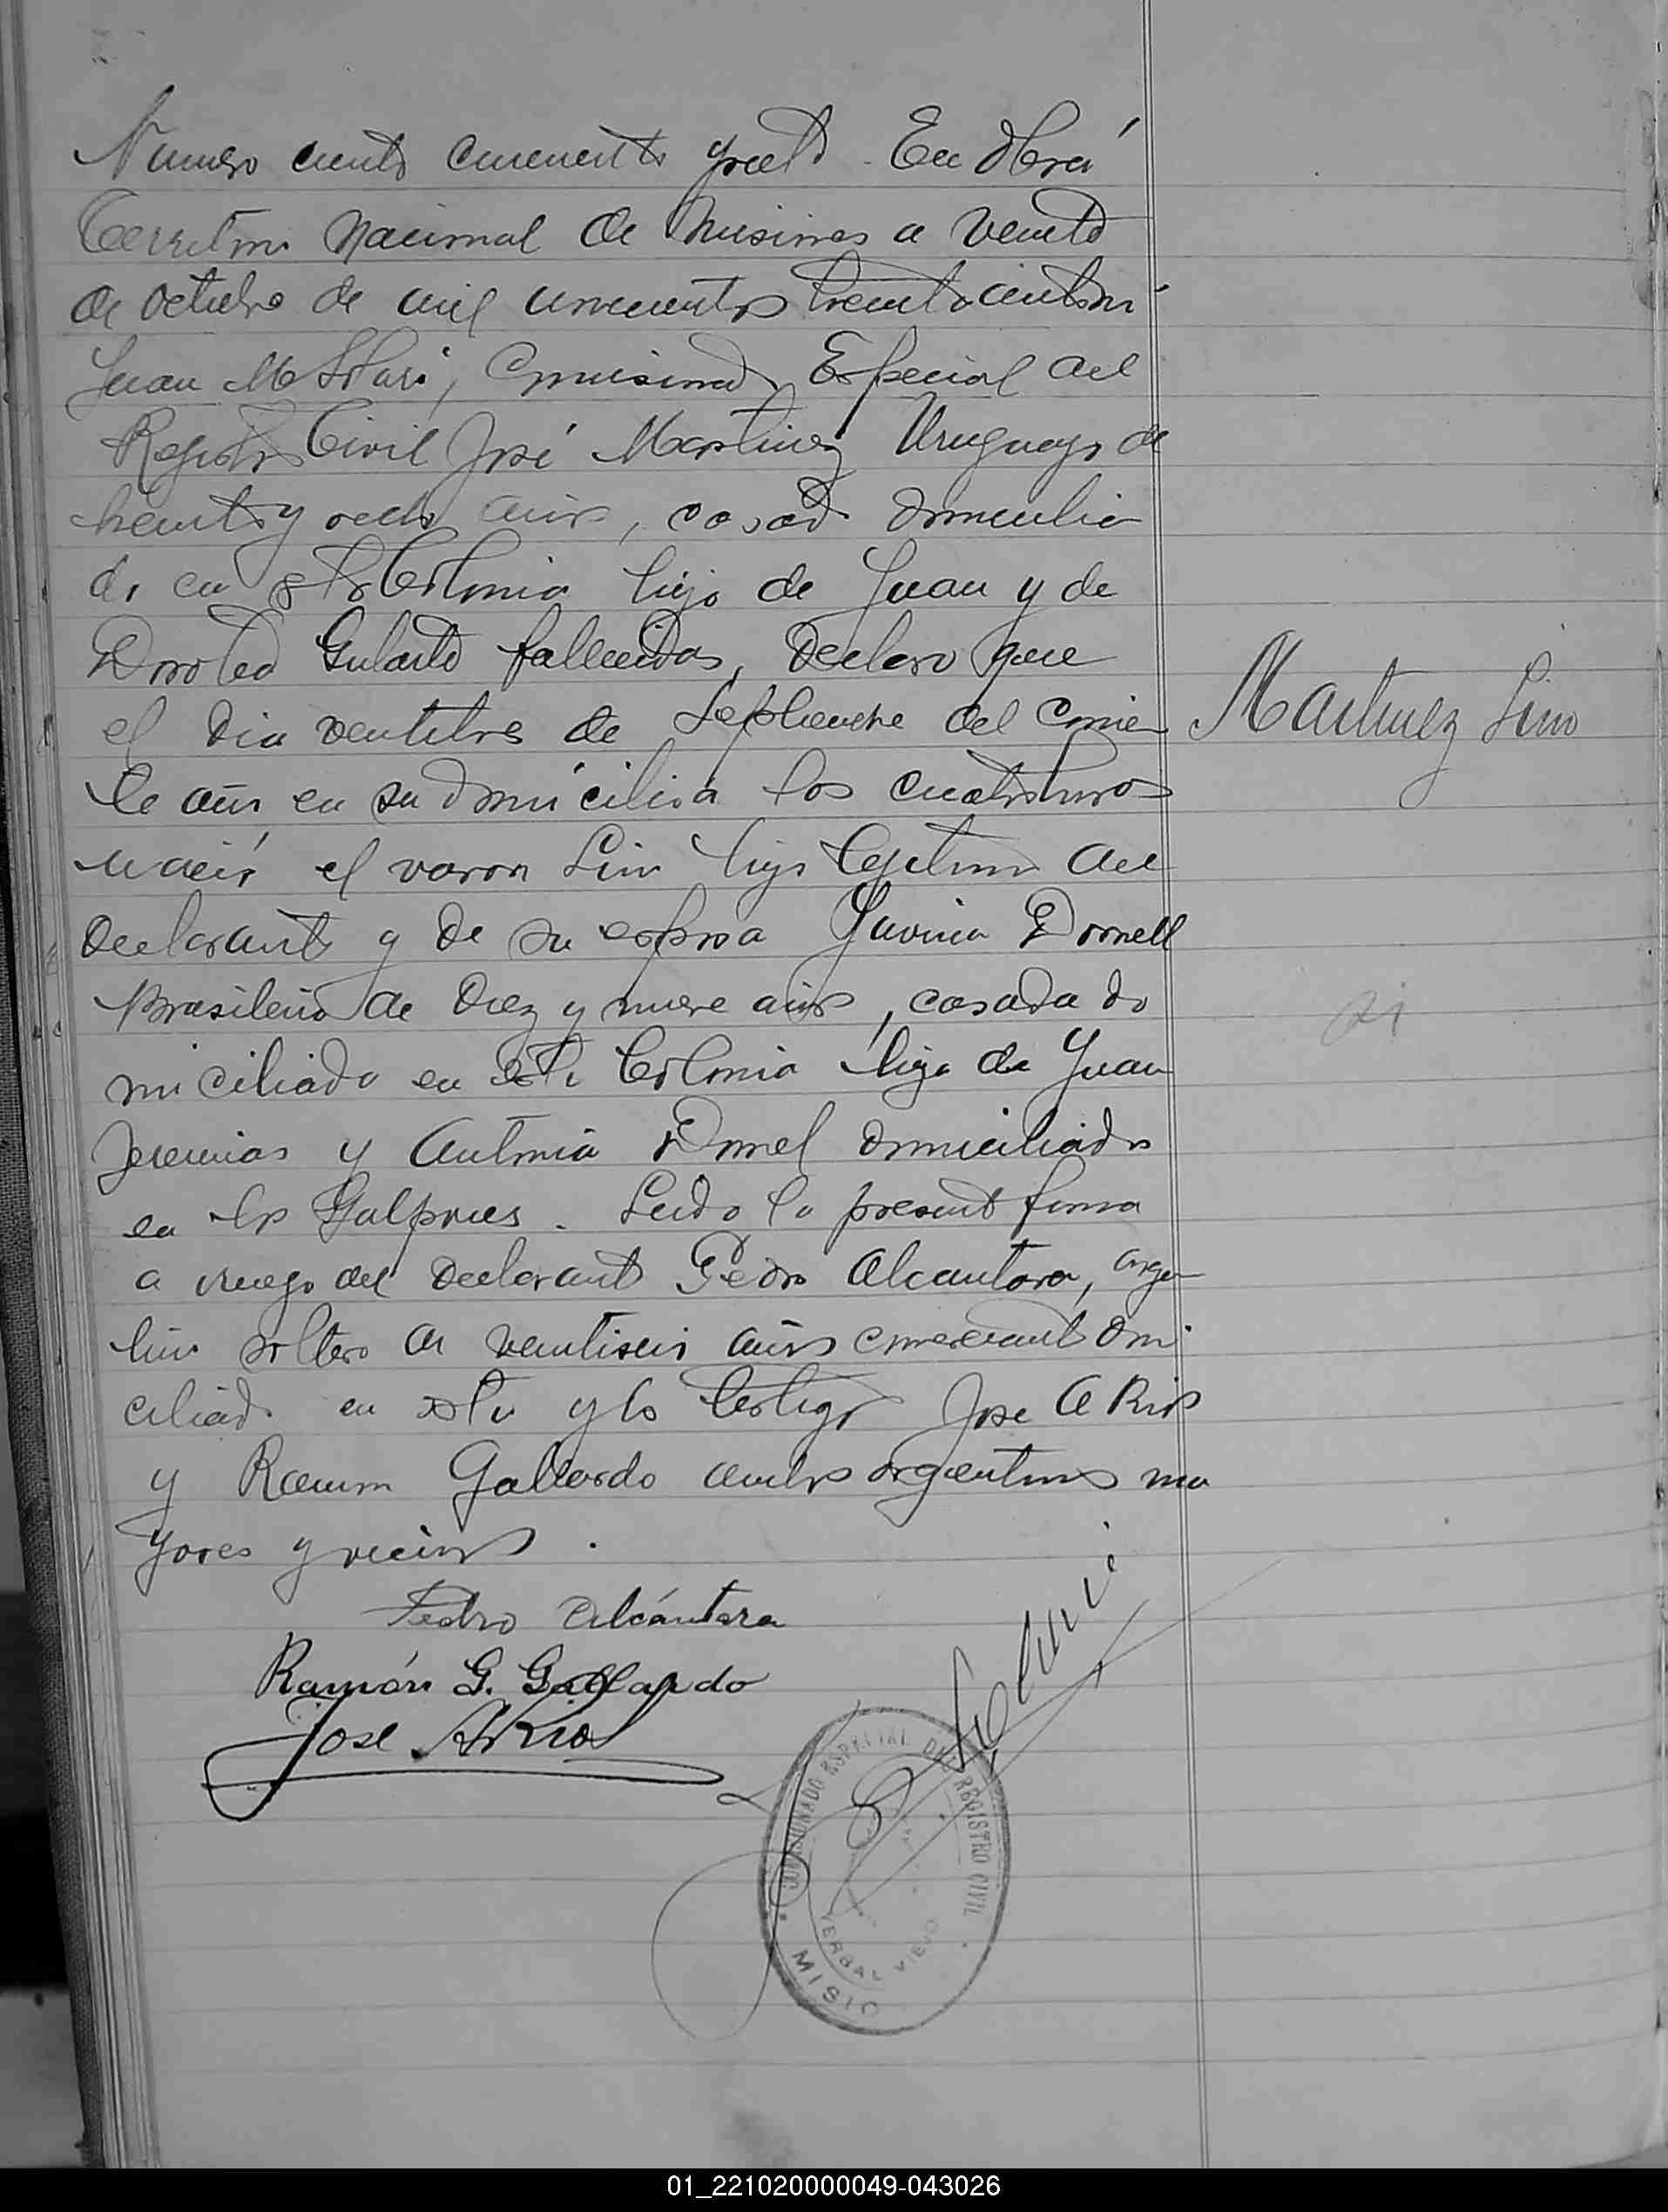 Numero ciento cuarenta y siete. En Oberá
Territorio Nacional de Misiones a veinte
de octubre de mil novecientos treinta ante mi
Juan M Solari, Comisionado Especial del
Registro Civil José Martinez Uruguayo de
treinta y ocho años, casado domicilia
do en esta Colonia hijo de Juan y de
Dorotea Gularte fallecidos, Declaro que
el dia ventitres de Septiembre del corrien
Martinez Lino
te año en su domicilio a las cuatro horas
nació el varon Lino hijo legitimo del
Declarante y de su esposa Dornell
Brasileña de Diez y nueve años, casada do
miciliada en esta Colonia hija de Juan
Jeremias y Antonia Dornel domiciliados
en los Galpones. Leida la presente firma
a ruego del Declarante Pedro Alcantara, argen
tino soltero de ventiseis años comerciante domi
ciliado en esta y los testigos Jose A Rios
y Ramon Gallardo ambos argentinos ma
yores y vecinos.
Pedro Alcántara
Ramón G. Gallardo
Jose A Rios
Solari
COMISIONADO ESPECIAL DEL REGISTRO CIVIL
YERBAL VIEJO
MISIO
01_221020000049-043026